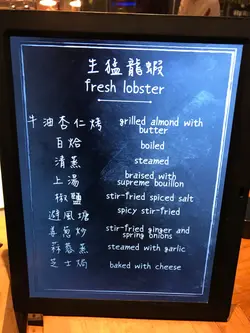 生猛龍蝦
fresh lobster
牛油杏仁烤 grilled almond with butter
白焓 boiled
清蒸 steamed
上湯 braised with supreme bouillon
椒鹽 stir-fried spiced salt
避風塘 spicy stir-fried
姜蔥炒 stir-fried ginger and spring onions
蒜蓉蒸 steamed with garlic
芝士焗 baked with cheese